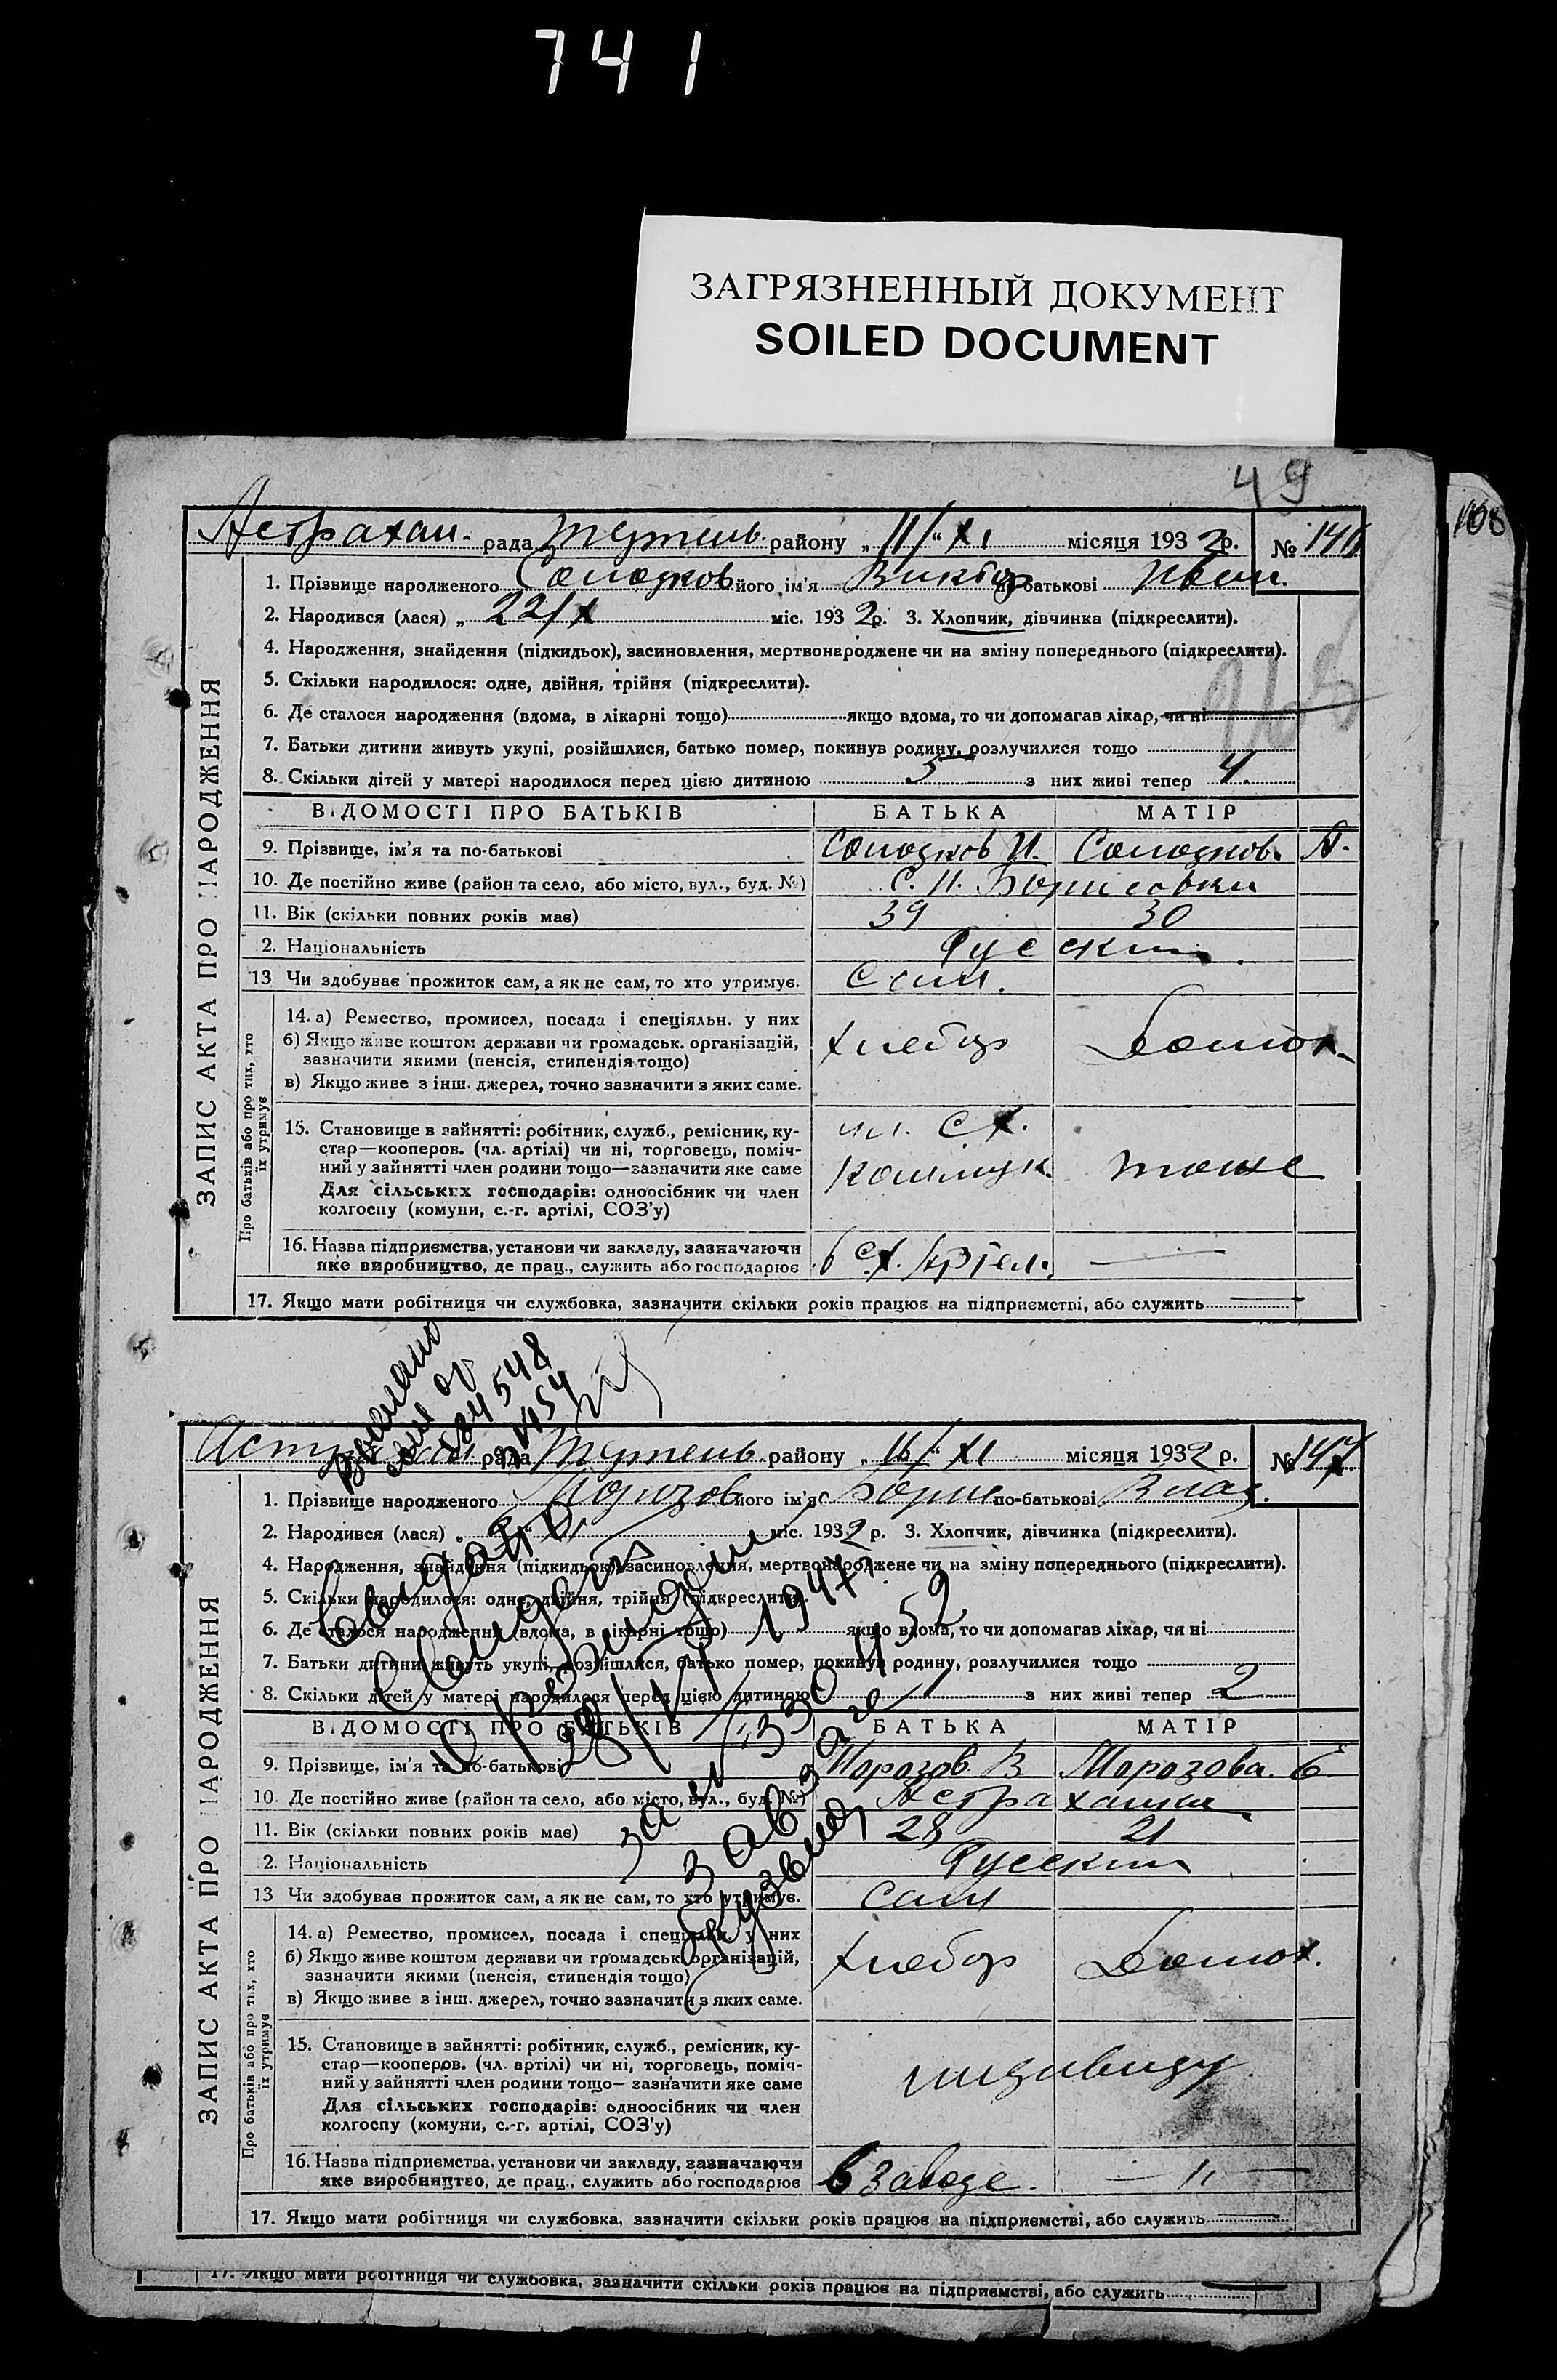 741
ЗАГРЯЗНЕННЫЙ ДОКУМЕНТ
SOILED DOCUMENT
49
ЗАПИС АКТА ПРО НАРОДЖЕННЯ
Астрахан. рада район у „11/“ XI місяця 1932р. №
1. Прізвище народженого Солодков його ім'я Виктор по-батькові Иван.
2. Народився (лася) „ 22/X міс. 1932р. 3. Хлопчик, дівчинка (підкреслити).
4. Народження, знайдення (підкидьок), засиновлення, мертвонароджене чи на зміну попереднього (підкреслити).
5. Скільки народилося: одне, двійня, трійня (підкреслити).
6. Де сталося народження (вдома, в лікарні тощо) якщо вдома, то чи допомагав лікар, чи ні
7. Батьки дитини живуть укупі, розійшлися, батько помер, покинув родину, розлучилися тощо
8. Скільки дітей у матері народилося перед цією дитиною 5 з них живі тепер 4.
ВІДОМОСТІ ПРО БАТЬКІВ БАТЬКА МАТІР
9. Прізвище, ім'я та по-батькові Солодков И. Солодков. А.
10. Де постійно живе (район та село, або місто, вул., буд. №) с. Н. Борисовки
11. Вік (скільки повних років має) 39 30
2. Національність Русские
13 Чи здобуває прожиток сам, а як не сам, то хто утримує. Сам.
Про батьків або про тих, хто їх утримує
14. а) Ремество, промисел, посада і спеціяльн. у них
б) Якщо живе коштом держави чи громадськ. організацій,
зазначити якими (пенсія, стипендія тощо) Хлебор Домох.
в) Якщо живе з інш. джерел, точно зазначити з яких саме.
15. Становище в зайнятті: робітник, служб., ремісник, ку-
стар—кооперов. (чл. артілі) чи ні, торговець, поміч- чл. С.Х.
ний у зайнятті член родини тощо—зазначити яке саме тоже
Для сільських господарів: одноосібник чи член
колгоспу (комуни, с.-г. артілі, СОЗ'у)
16. Назва підприємства, установи чи закладу, зазначаючи
яке виробництво, де прац., служить або господарює в с.х. Артел. —
17. Якщо мати робітниця чи службовка, зазначити скільки років працює на підприємстві, або служить —
ЗАПИС АКТА ПРО НАРОДЖЕННЯ
рада району „16/“ XI місяця 1932 р. № 147
1. Прізвище народженого Морозов його ім'я Борис по-батькові Влад.
2. Народився (лася) „ міс. 1932 р. 3. Хлопчик, дівчинка (підкреслити).
4. Народження, знайдення (підкидьок), засиновлення, мертвонароджене чи на зміну попереднього (підкреслити).
5. Скільки народилося: одне, двійня, трійня (підкреслити).
6. Де сталося народження (вдома, в лікарні тощо) якщо вдома, то чи допомагав лікар, чи ні
7. Батьки дитини живуть укупі, розійшлися, батько помер, покинув родину, розлучилися тощо
8. Скільки дітей у матері народилося перед цією дитиною 1 з них живі тепер 2
ВІДОМОСТІ ПРО БАТЬКІВ БАТЬКА МАТІР
9. Прізвище, ім'я та по-батькові Морозов В Морозова. Е.
10. Де постійно живе (район та село, або місто, вул., буд. №) Астраханка
11. Вік (скільки повних років має) 28 21
2. Національність Русские
13 Чи здобуває прожиток сам, а як не сам, то хто утримує. Сам
Про батьків або про тих, хто їх утримує
14. а) Ремество, промисел, посада і спеціяльн. у них
б) Якщо живе коштом держави чи громадськ. організацій, Хлебор Домох.
зазначити якими (пенсія, стипендія тощо)
в) Якщо живе з інш. джерел, точно зазначити з яких саме.
15. Становище в зайнятті: робітник, служб., ремісник, ку-
стар—кооперов. (чл. артілі) чи ні, торговець, поміч- индивиду
ний у зайнятті член родини тощо—зазначити яке саме
Для сільських господарів: одноосібник чи член
колгоспу (комуни, с.-г. артілі, СОЗ'у)
16. Назва підприємства, установи чи закладу, зазначаючи
яке виробництво, де прац., служить або господарює В заводе. — " —
17. Якщо мати робітниця чи службовка, зазначити скільки років працює на підприємстві, або служить —
17. Якщо мати робітниця чи службовка, зазначити скільки років працює на підприємстві, або служить